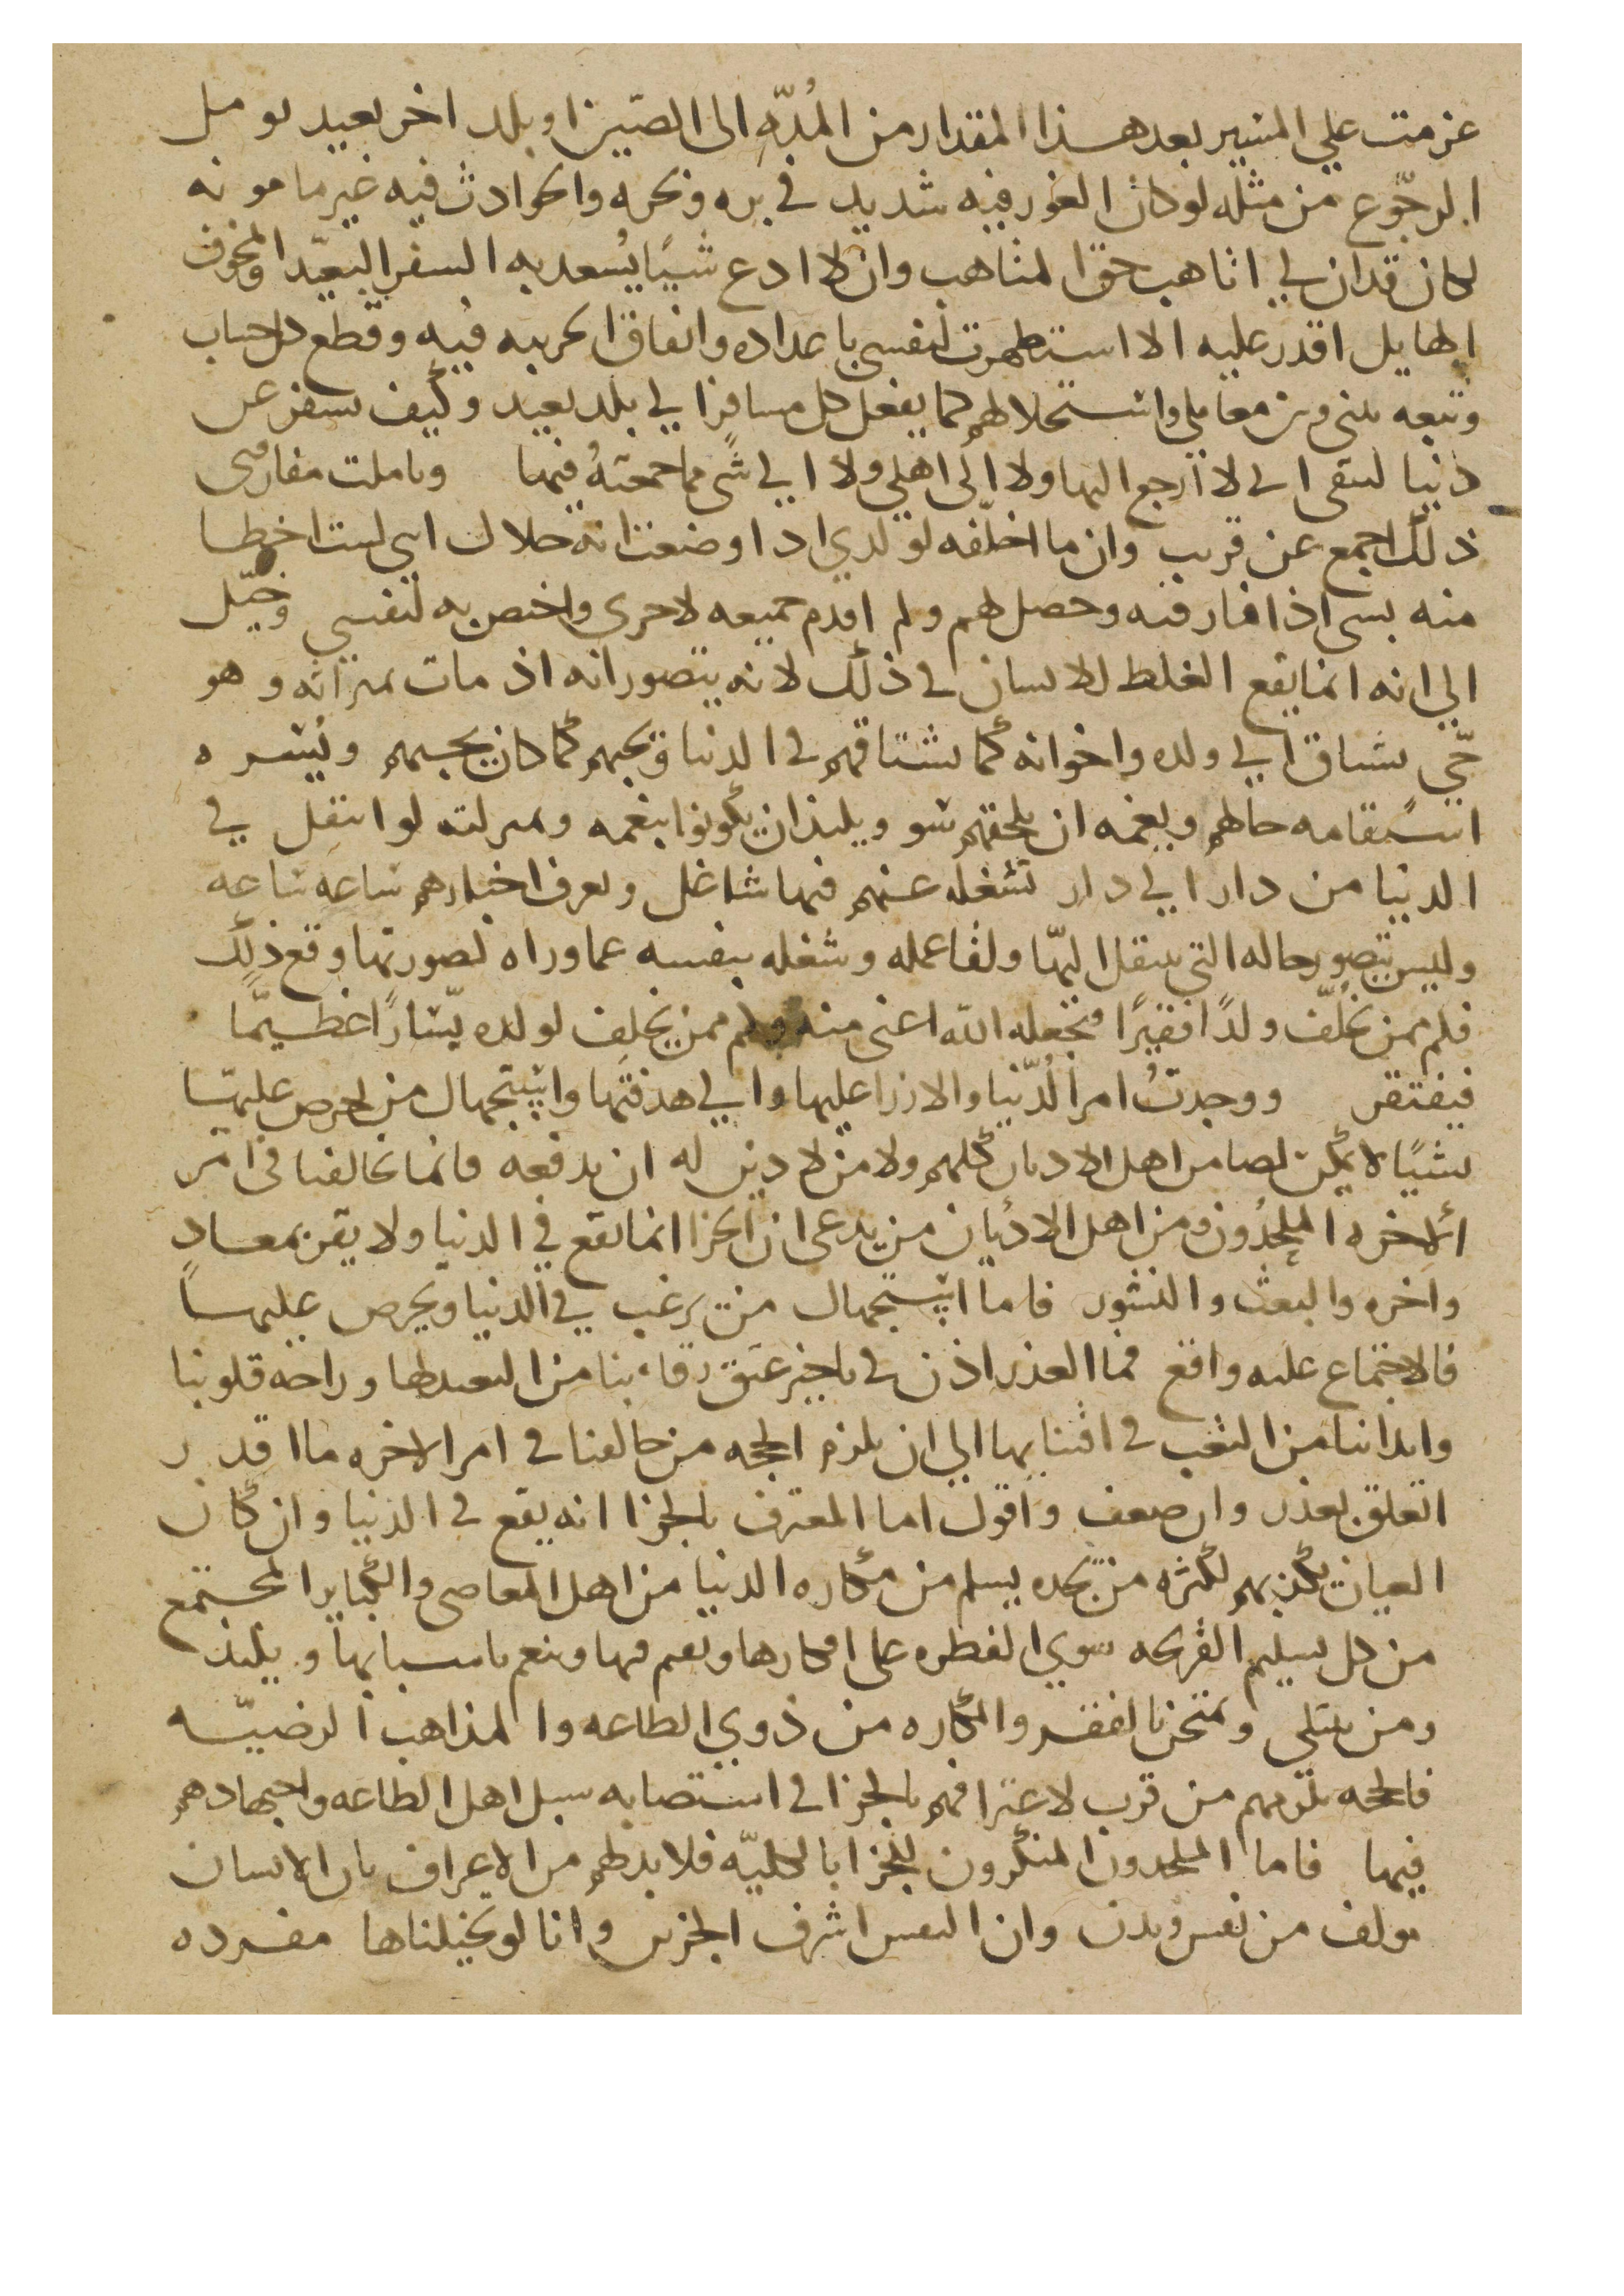 عزمت علي المسير بعد هذا المقدار من المُدّهِ الى الصّين او بلد اخر بعيد يومل
الرجّوع من مثله لو كان الغور فيه شديد في بره وبحره والحوادث فيه غير مامونه
لكان قد ان لي اتاهب حق التاهب وان لا ادع شيًا يُسعد به السفر البعيّد المخوف
الهايل اقدر عليه الا استظهرت لنفسي باعداده وانفاق الحريبه فيه وقطع كل حساب
وتبعه بيني وبين معاملي واستحلالهم كما يفعل كل مسافر الي بلد بعيد وكيف بسفر عن
دنيا ليتقى اني لا ارجع اليها ولا الى اهلي ولا الي شي مما جمعته فيها وتاملت مفارقتي
ذلك اجمع عن قريب وان ما اخلّفه لولدي اذا وضعت انه حلال اني لست اخطا
منه بشي اذا فارقته وحصل لهم ولم اقدم جميعه لاخرى واختص به لنفسي وخيّل
الي انه انما يقع الغلط للانسان في ذلك لانه يتصور انه اذ مات بمراته وهو
حّي يشتاق الي ولده واخوانه كما يشتاقهم في الدنيا ويحبهم كما كان يحبهم ويُسره
استقامه حالهم ويغمه ان يلحقهم سو ويلتذ ان يكونوا بنعمه وبمنزلته لو انتقل في
الدنيا من دار الي دار تشغله عنهم فيها شاغل ويعرف اخبارهم ساعه ساعه
وليس يتصور حاله التي ينتقل اليها ولقا عمله وشغله بنفسه عما وراه لصورتها وقع ذلك
فلم ممن يخلّف ولدًا فقيرًا فيجعله الله اغنى منه وكم ممن يخلف لولده يسّارًا عظيمًا
فيفتقر ووجدتُ امر الدّنيا والازرا عليها والي هدفتها واستجهال من يحرص عليها
شيًا لا يمكن لصا من اهل الاديان كلهم ولا من لا دين له ان يدفعه فانما يخالفنا في امر
الاخره الملحدُون ومن اهل الاديان من يدعى ان الجزا انما يقع في الدنيا ولا يقر بمعادٍ
واخره والبعث والنشور فاما استجهال من يرغب في الدنيا ويحرص عليها
فالاجتماع عليه واقع فما العذر اذن في تاخير عتق رقابنا من التعبد لها وراحه قلوبنا
وابداننا من التعب في اقتنايها الي ان يلزم الحجه من خالفنا في امر الاخره ما اقدر
اتعلق بعذر وان ضعف واقول اما المعترف بالجزا انه يقع في الدنيا وان كان
العيان يكذبهم لكثره من نجده يسلم من مكاره الدنيا من اهل المعاصي والكباير المجتمع
من كل سليم القريحه سوي الفطره على انكارها ونعم فيها وينعم باسبابها ويلتذ
ومن يبتلي ويمتحن بالفقر والمكاره من ذوي الطاعه والمذاهب الرضيّه
فالحجه تلزمهم من قرب لاعترافهم بالجزا في استصابه سبل اهل الطاعه واجتهادهم
فيها فاما الملحدون المنكرون للجزا بالكليّه فلا بد لهم من الاعراف بان الانسان
مولف من نفس وبدن وان النفس اشرف الجزين وانا لو تخيلناها مفرده